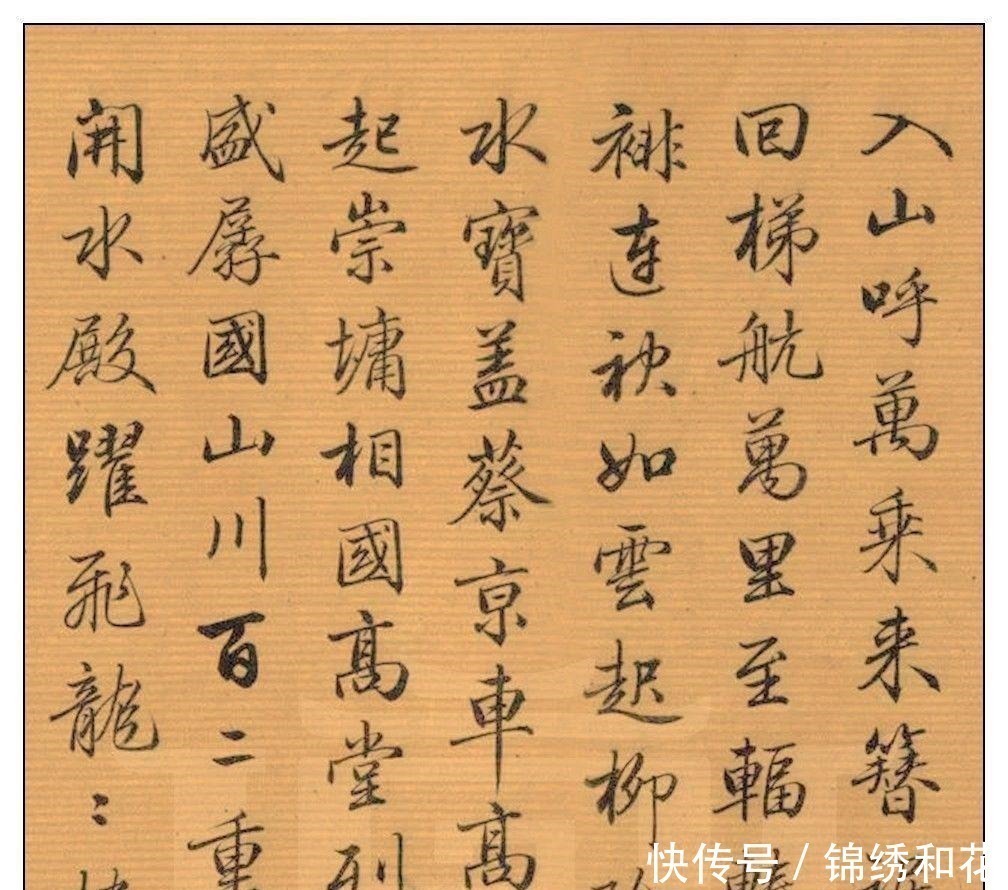 入山呼萬乘来簪
回梯航萬里至輻
褂连袂如雲起柳
水寶盖蔡京車高
起崇墉相國高堂列
盛孱國山川百二重
開水殿躍飛龍〻
快传号 / 锦绣和花